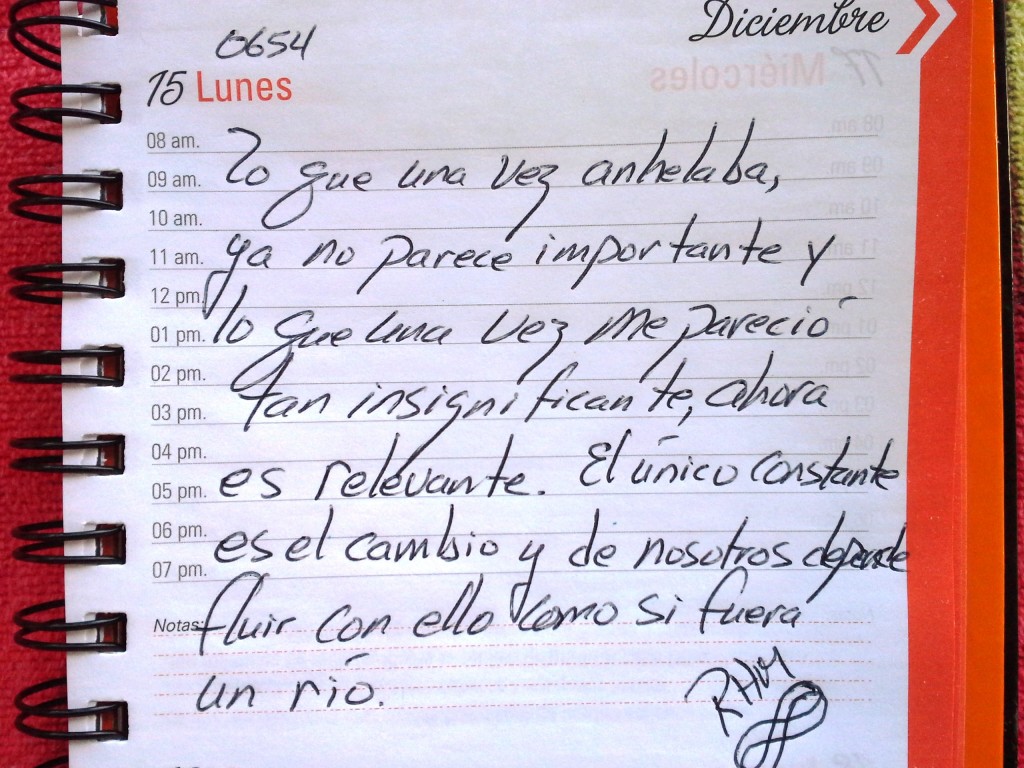 Diciembre
0654
15 Lunes
17 Miércoles
08 am.
Lo que una vez anhelaba,
09 am.
10 am.
ya no parece importante y
11 am.
12 pm.
lo que una vez me pareció
01 pm.
02 pm.
tan insignificante, ahora
03 pm.
04 pm.
es relevante. El único constante
05 pm.
06 pm.
es el cambio y de nosotros depende
07 pm.
Notas:
fluir con ello como si fuera
un río.